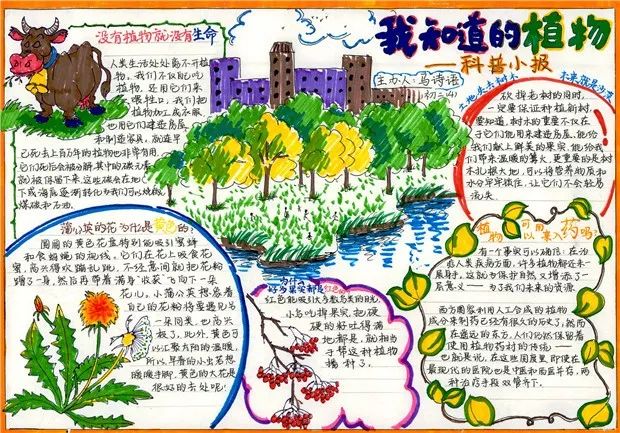 我知道的植物
——科普小报
主办人:马诗语
初二(4)
没有植物就没有生命
人类生活处处离不开植
物。我们不仅自己吃
植物,还用它们来
喂牲口。我们把
植物加工成衣服,
也用它们建造房屋
和制造家具,就连早
已死去上百万年的植物也非常有用
它们死后会被分解,其中的碳元素
就被保留下来,这些碳会在地
下或海底逐渐转化为我们可以烧的
煤炭和石油。
砍掉老树的同时,
一定要保证种植新树,
要知道,树木的重要不仅在
于它们能用来建造房屋,能给
我们献上鲜美的果实,能给我
们带来温暖的篝火,更重要的是树
木扎根大地,可以将营养物质和
水分牢牢锁住,让它们不会轻易
流失
蒲公英的花为什么是黄色的:
圆圆的黄色花盘特别能吸引蜜蜂
和食蚜蝇的视线。它们在花上吸食花
蜜,高兴得欢蹦乱跳,不经意间就把花粉
蹭了一身,然后再带着满身“收获”飞向下一朵
花儿。小蒲公英想把着
自己的花粉将要遇见另
一朵同类,也高兴
极了。此外,黄色可
以汇聚太阳的温暖,
所以,早春的小虫若想
暖暖手脚,黄色的大花是
很好的去处呢!
为什么
好多果实都是红色的
红色能吸引大多数鸟类的眼,
小鸟吃掉果实,把硬
硬的籽吐得满
地都是,就相当
于帮这种植物
播种了。
植物可用
以来入药吗?
有一个事实可确信:在治
愈人类疾病方面,许多植物都还未一
展身手。这就为保护自然又增添了一
层意义——为了我们未来的资源
西方国家利用人工合成的植物
成分来制药已经有很久的历史了,然而
在遥远的东方,人们仍然保留着
使用植物制药材的传统——
也就是说,在这些国度里,即使在
最现代的医院也是中医和西医并存,两
种治疗手段双管齐下。